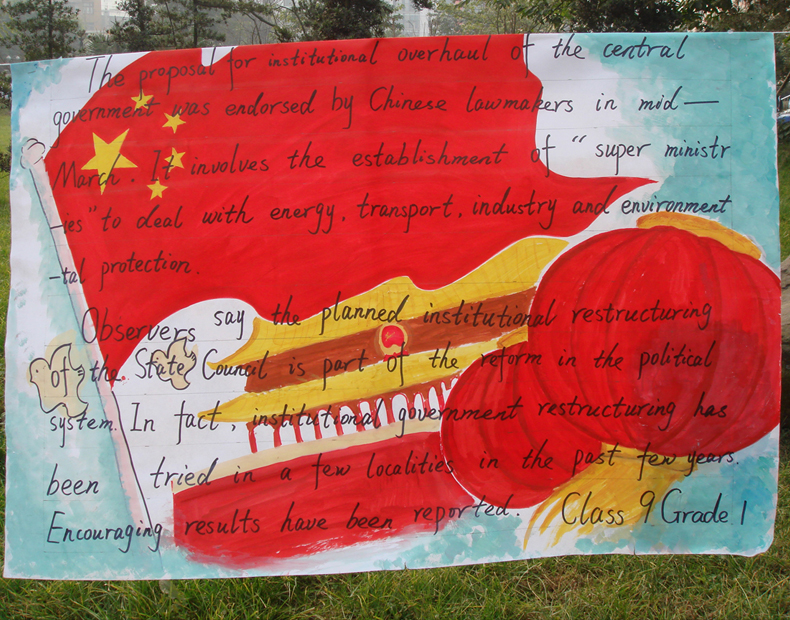 The proposal for institutional overhaul of the central
government was endorsed by Chinese lawmakers in mid —
March. It involves the establishment of “super ministr
—ies” to deal with energy, transport, industry and environment
—tal protection.
Observers say the planned institutional restructuring
of the State Council is part of the reform in the political
system. In fact, institutional government restructuring has
been tried in a few localities in the past few years.
Encouraging results have been reported. Class 9 Grade 1